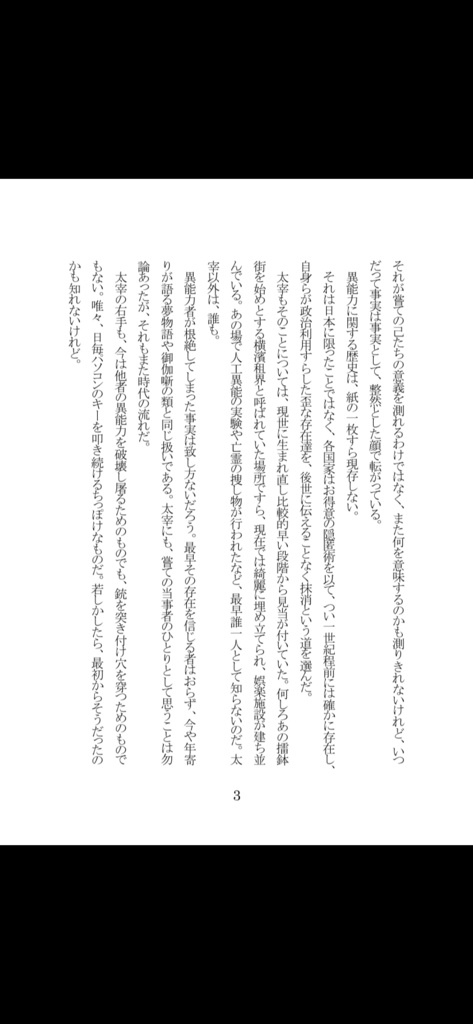 それが嘗ての己たちの意義を測れるわけではなく、また何を意味するのかも測りきれないけれど、いつ
だって事実は事実として、整然とした顔で転がっている。
異能力に関する歴史は、紙の一枚すら現存しない。
それは日本に限ったことではなく、各国家はお得意の隠匿術を以て、つい一世紀程前には確かに存在し、
自身らが政治利用すらした歪な存在達を、後世に伝えることなく抹消という道を選んだ。
太宰もそのことについては、現世に生まれ直し比較的早い段階から見当が付いていた。何しろあの擂鉢
街を始めとする横濱租界と呼ばれていた場所ですら、現在では綺麗に埋め立てられ、娯楽施設が建ち並
んでいる。あの場で人工異能の実験や亡霊の捜し物が行われたなど、最早誰一人として知らないのだ。太
宰以外は、誰も。
異能力者が根絶してしまった事実は致し方ないだろう。最早その存在を信じる者はおらず、今や年寄
りが語る夢物語や御伽噺の類と同じ扱いである。太宰にも、嘗ての当事者のひとりとして思うことは勿
論あったが、それもまた時代の流れだ。
太宰の右手も、今は他者の異能力を破壊し屠るためのものでも、銃を突き付け穴を穿つためのもので
もない。唯々、日毎パソコンのキーを叩き続けるちっぽけなものだ。若しかしたら、最初からそうだったの
かも知れないけれど。
3